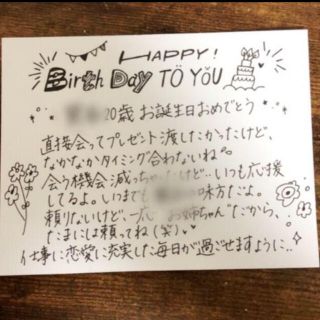 HAPPY!
Birth Day TO YOU
20歳 お誕生日おめでとう
直接会ってプレゼント渡したかったけど、
なかなかタイミング合わないね
会う機会減っちゃったけど…いつも応援
してるよ。いつまでも 味方だよ。
頼りないけど、一応 お姉ちゃん"だから、
たまには頼ってね(笑)
仕事に恋愛に充実した毎日が過ごせますように…